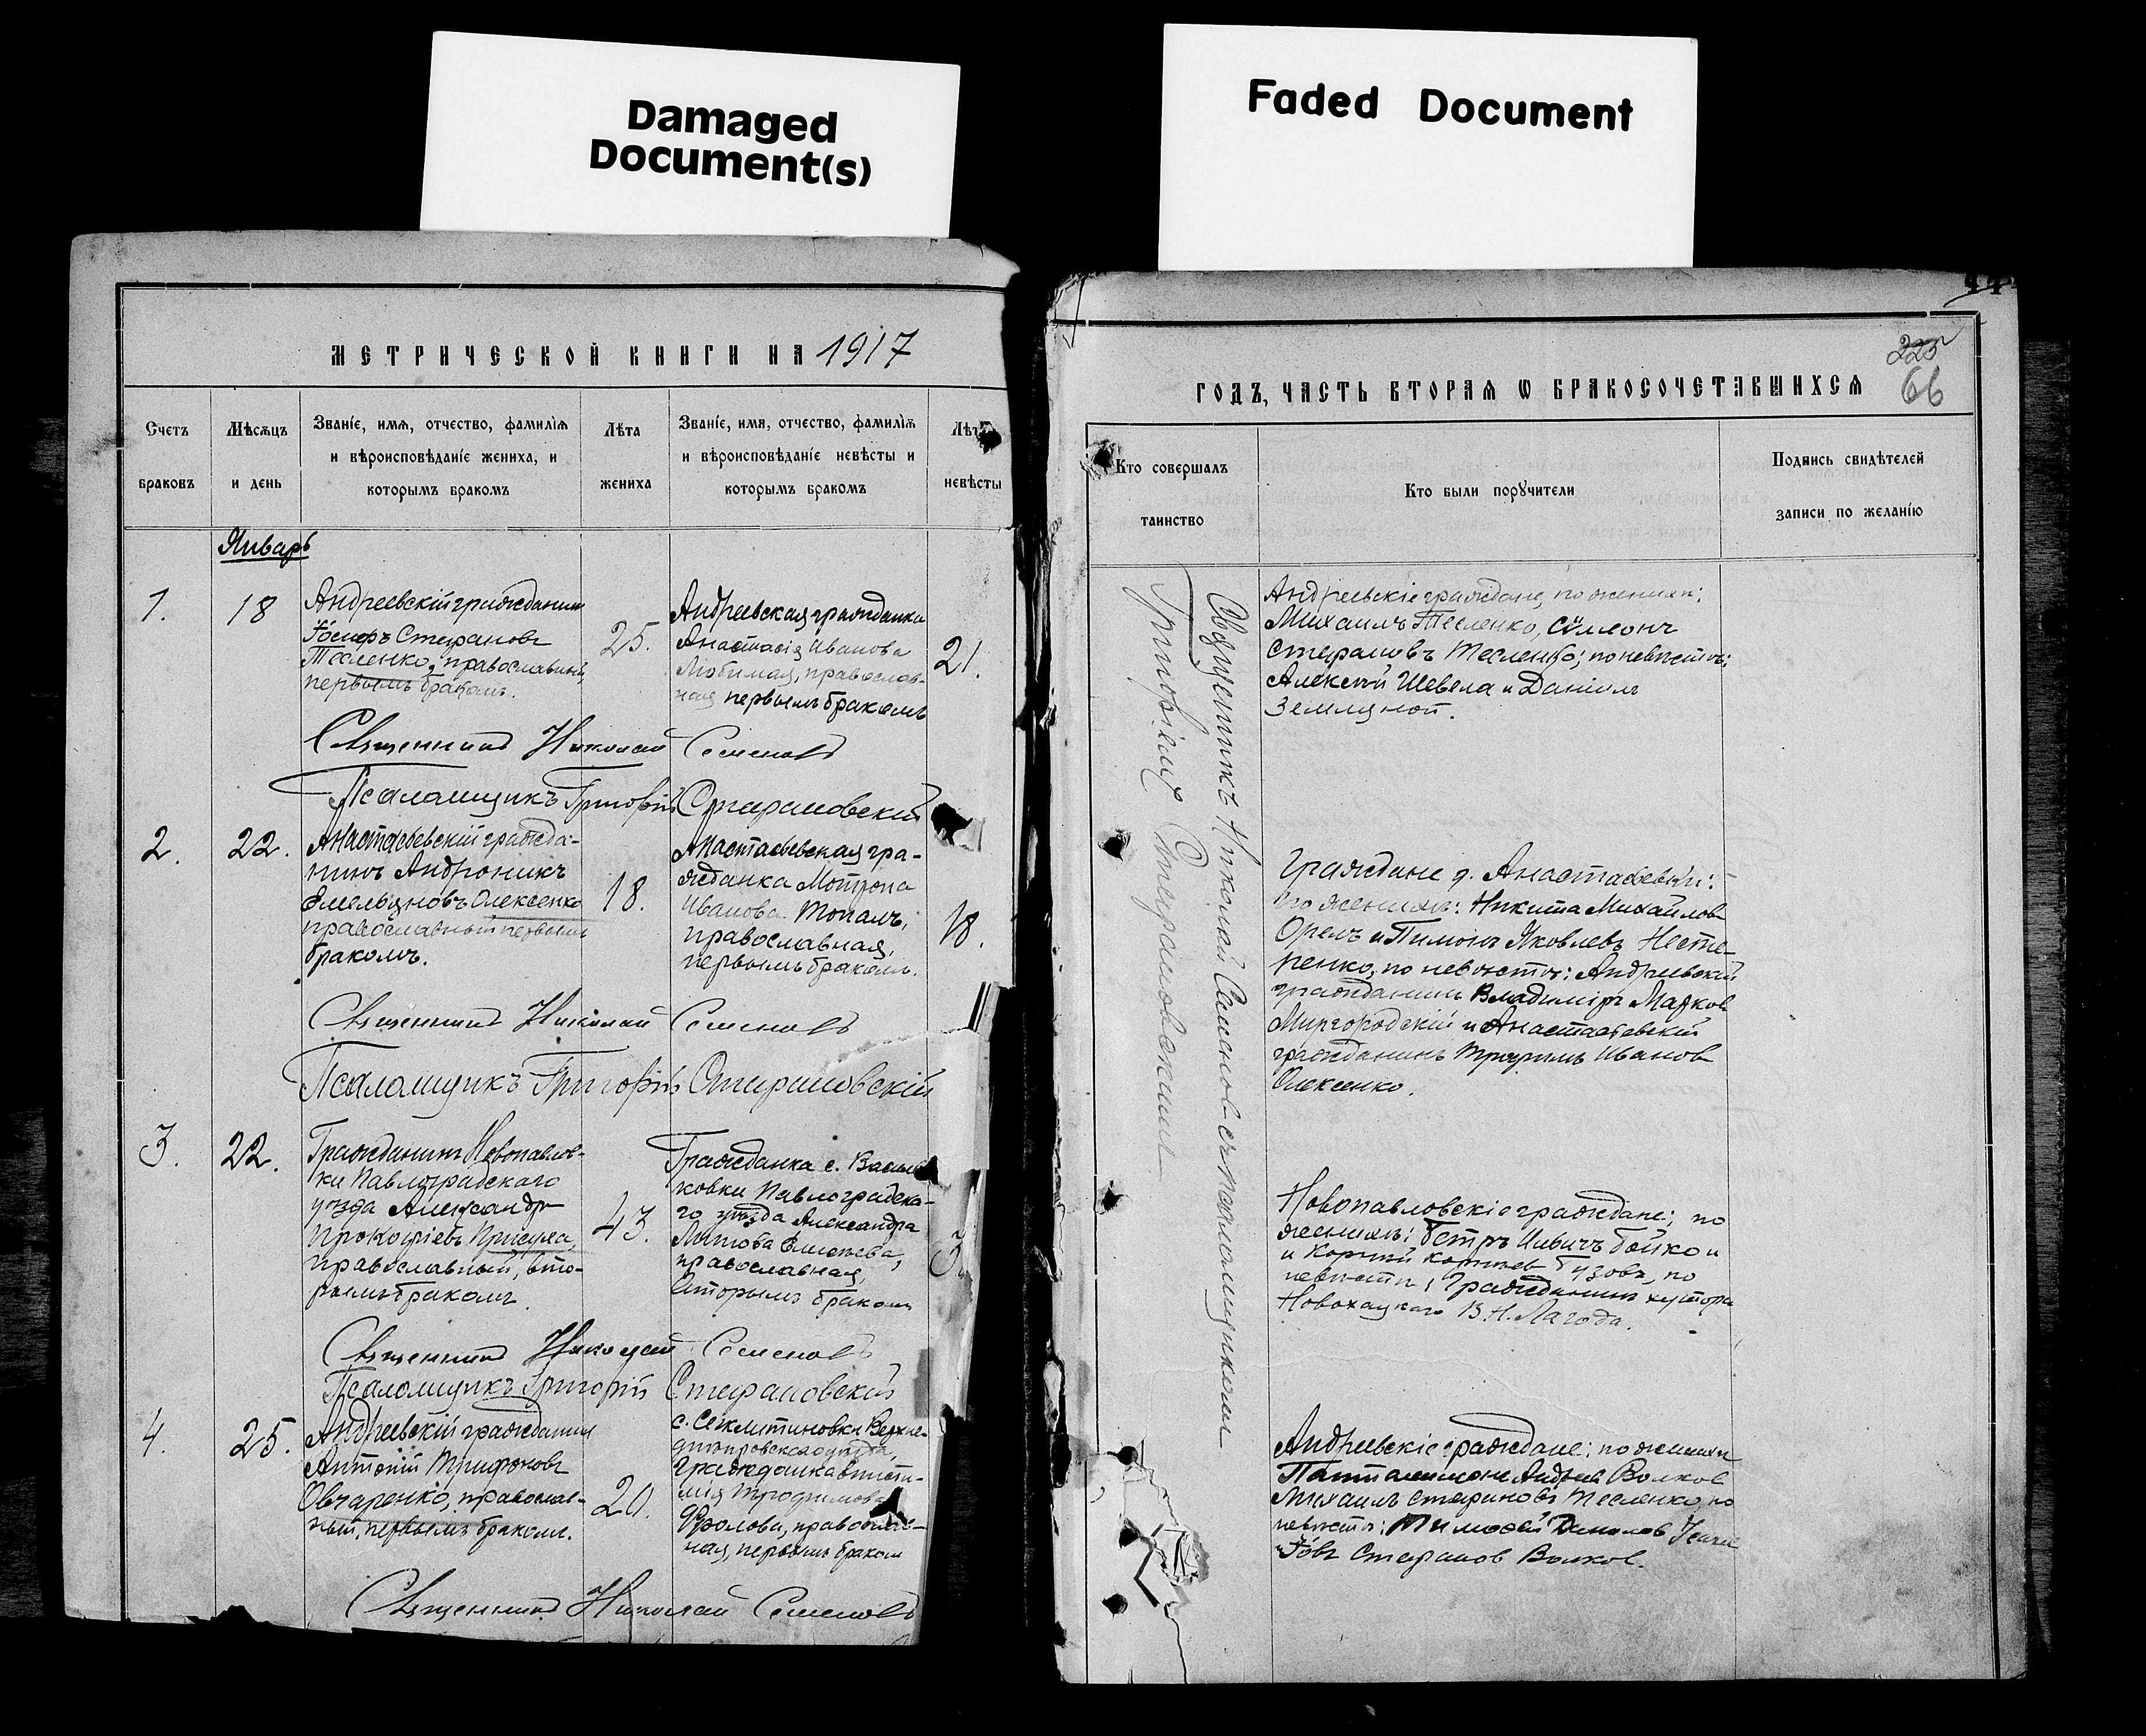 Damaged
Document(s)
Faded Document
МЕТРИЧЕСКОЙ КНИГИ НА 1917
Счетъ
браковъ
Мѣсяцъ
и день
Званіе, имя, отчество, фамилія
и вѣроисповѣданіе жениха, и
которымъ бракомъ
Лѣта
жениха
Званіе, имя, отчество, фамилія
и вѣроисповѣданіе невѣсты и
которымъ бракомъ
невѣсты
Январь
1.
18
Андреевскій гражданинъ
Іосифъ Стефановъ
Тесленко, православный,
первымъ бракомъ.
25.
Андреевская гражданка
Анастасія Иванова
Любимая, православ-
ная первымъ бракомъ
21.
Священникъ Николай Семеновъ
Псаломщикъ Григорій Стефановскій
2.
22.
Анастасьевскій гражда-
нинъ Андроникъ
Емельяновъ Олексенко
православный первымъ
бракомъ.
18.
Анастасьевская гра-
жданка Мотрона
Иванова Топалъ,
православная,
первымъ бракомъ.
18.
Священникъ Николай Семеновъ
Псаломщикъ Григорій Стефановскій
3.
22.
Гражданинъ Новопавлов-
ки Павлоградскаго
уѣзда Александръ
Прокофіевъ
православный, вто-
рымъ бракомъ
43.
Гражданка с. Василь
ковки Павлоградска-
го уѣзда Александра
православная,
вторымъ бракомъ
3
Священникъ Николай Семеновъ
Псаломщикъ Григорій Стефановскій
4.
25.
Андреевскій гражданинъ
Антоній Трифоновъ
Овчаренко, православ-
ный, первымъ бракомъ.
20.
с. Верхне-
днѣпровскаго уѣзда,
гражданка
Трофимова
Фролова, православ-
ная, первымъ бракомъ
Священникъ Николай Семеновъ
225
66
ГОДЪ, ЧАСТЬ ВТОРАЯ Ѡ БРАКОСОЧЕТАВШИХСЯ
Кто совершалъ
таинство
Кто были поручители
Подпись свидѣтелей
записи по желанію
Священникъ Николай Семенов съ псаломщикомъ
Григоріемъ Стефановскимъ
Андреевскіе граждане, по женихѣ:
Михаилъ Тесленко, Сѵмеонъ
Стефановъ Тесленко; по невѣстѣ:
Алексѣй Шевела и Даніилъ
Землцной.
Граждане д. Анастасьевки:
по женихѣ: Никита Михайлов
Орелъ и Пимонъ Яковлевъ Несте-
ренко, по невѣстѣ: Андреевскій
гражданинъ Владиміръ Марков
Миргородскій и Анастасьевскій
гражданинъ Трифонъ Иванов
Олексенко.
Новопавловскіе граждане; по
женихѣ: Петръ Бойко и
и Корній Бузовъ, по
невѣстѣ, гражданинъ хутора
В. Н. Лагода.
Андреевскіе граждане: по женихѣ
Пантелеимонъ Андреев Волков
Михаилъ Стефановъ Тесленко, по
невѣстѣ: Тимофей Данилов
Іовъ Стефанов Волков.